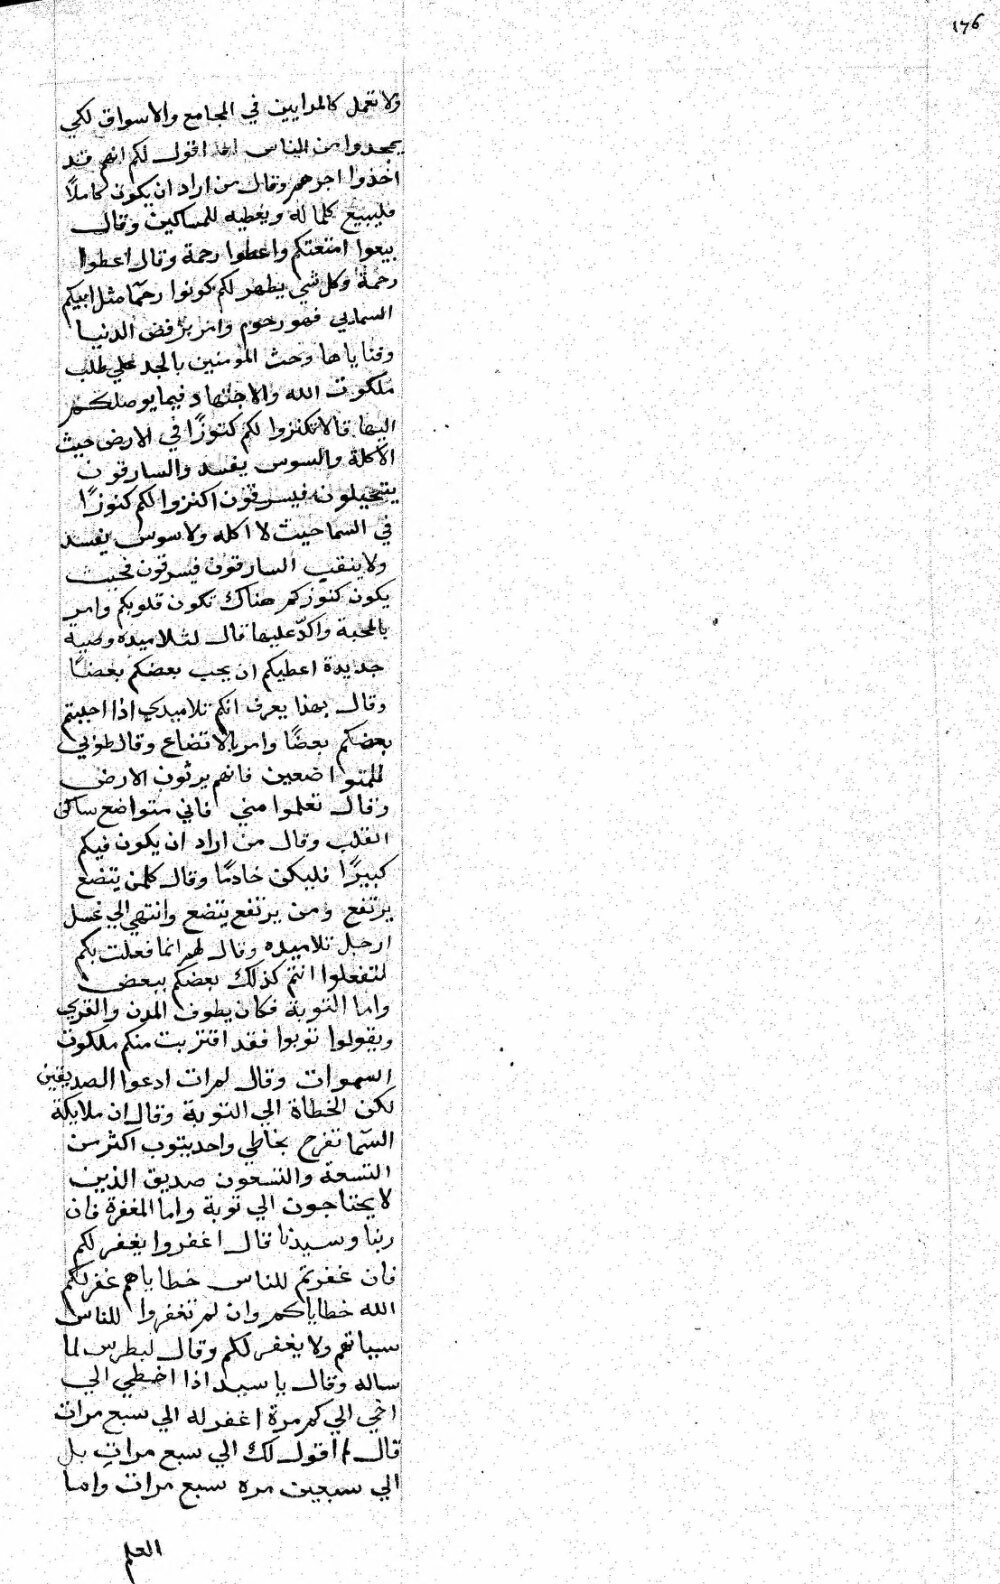 176
ولا تعمل كالمرايين في المجامع والاسواق لكي
يحمدوا من الناس اقول لكم انهم قد
اخذوا اجرهم وقال من اراد ان يكون كاملاً
فليبيع كلما له ويعطيه للمساكين وقال
بيعوا امتعتكم واعطوا رحمة وقال اعطوا
رحمة وكل شي يطهر لكم كونوا رحمآ مثل ابيكم
السمايي فهو رحوم وامر برفض الدنيا
وقناياها وحث المومنين بالجد علي طلب
ملكوت الله والاجتهاد فيما يوصلكم
اليها قال لا تكنزوا لكم كنوزًا في الارض حيث
الاكلة والسوس يفسد والسارقون
يتحيلون فيسرقون اكنزوا لكم كنوزًا
في السما حيث لا اكله ولا سوس يفسد
ولا ينقب السارقون فيسرقون فحيث
يكون كنوزكم هناك تكون قلوبكم وامر
بالمحبة واكدّ عليها قال لتلاميده وصيه
جديدة اعطيكم ان يحب بعضكم بعضًا
وقال بهذا يعرف انكم تلاميدي اذا احببتم
بعضكم بعضًا وامر بالاتضاع وقال طوبي
للمتواضعين فانهم يرثون الارض
وقال تعلموا مني فاني متواضع ساكن
القلب وقال من اراد ان يكون فيكم
كبيرًا فليكن خادمًا وقال كلمن يتضع
يرتفع ومن يرتفع يتضع وانتهي الي غسل
ارجل تلاميده وقال لهم انما فعلت بكم
لتفعلوا انتم كذلك بعضكم ببعض
واما التوبة فكان يطوف المدن والقري
ويقولوا توبوا فقد اقتربت منكم ملكوت
السموات وقال لم ات ادعوا الصديقين
لكن الخطاة الي التوبة وقال ان ملايكة
السّما تفرح بخاطي واحد يتوب اكثر من
التسعة والتسعون صديق الذين
لا يحتاجون الي توبة واما المغفرة فان
ربنا وسيدنا قال اغفروا يغفر لكم
فان غفرتم للناس خطاياهم غفر لكم
الله خطاياكم وان لم تغفروا للناس
سياتهم ولا يغفر لكم وقال لبطرس لما
ساله وقال يا سيد اذا اخطي الي
اخي الي كم مرة اغفر له الي سبع مرات
قال لا اقول لك الي سبع مرات بل
الي سبعين مره سبع مرات واما
العلم